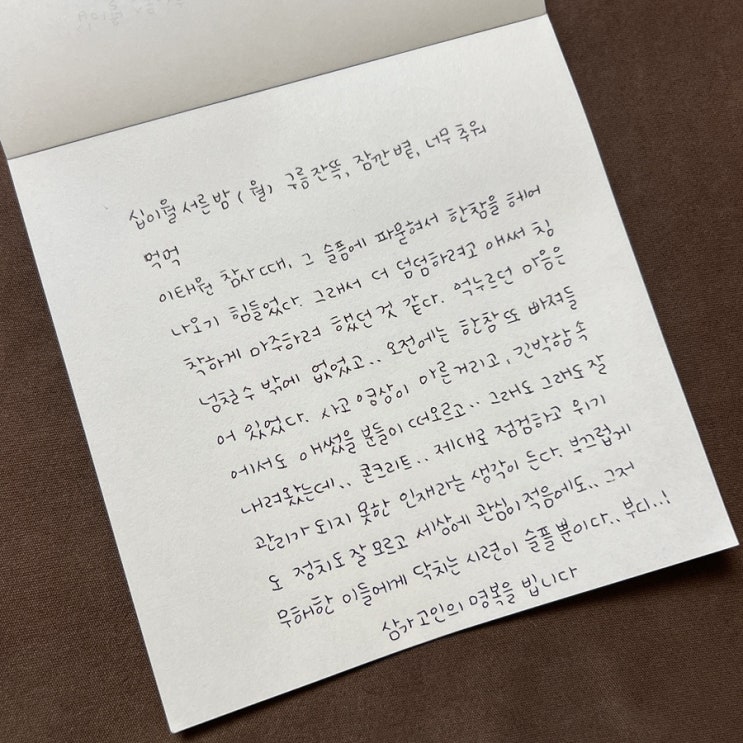 십이월 서른밤 (월) 구름잔뜩, 잠깐 볕, 너무 추워
먹먹
이태원 참사 때, 그 슬픔에 파묻혀서 한참을 헤어
나오기 힘들었다. 그래서 더 덤덤하려고 애써 침
착하게 마주하려 했던 것 같다. 억누르던 마음은
넘칠 수 밖에 없었고.. 오전에는 한참 또 빠져들
어 있었다. 사고 영상이 아른거리고, 긴박함 속
에서도 애썼을 분들이 떠오르고.. 그래도 그래도 잘
내려왔는데.. 콘크리트.. 제대로 점검하고 위기
관리가 되지 못한 인재라는 생각이 든다. 부끄럽게
도 정치도 잘 모르고 세상에 관심이 적음에도.. 그저
무해한 이들에게 닥치는 시련이 슬플 뿐이다.. 부디..!
삼가 고인의 명복을 빕니다